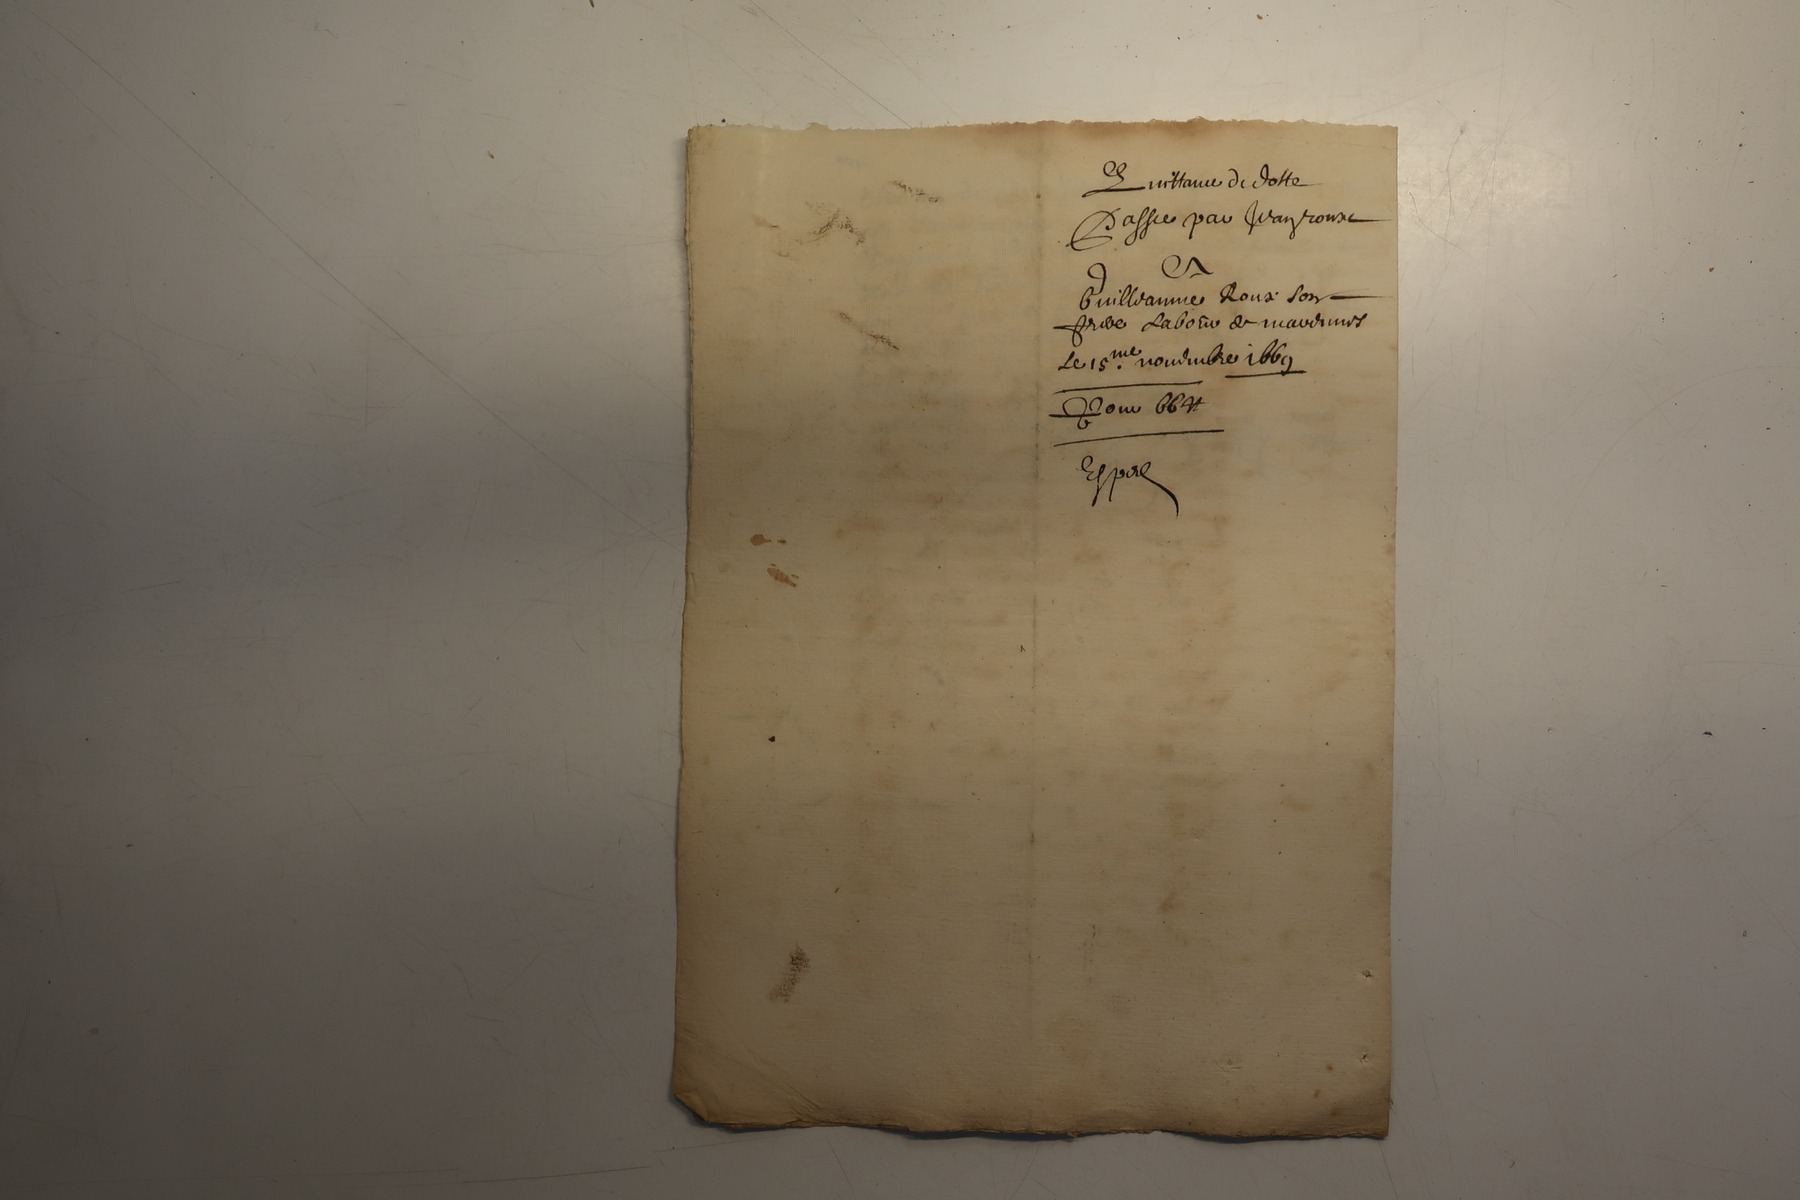 Quittance de dotte
Passée par Jean roux
A
Guilleaume Roux son
frere Labour de
Le 15.me novembre 1669
Pour 66 ₶
Espert